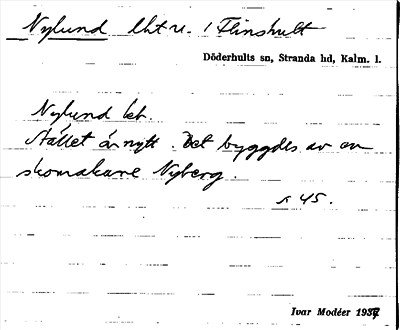 Nylund lht u. / Flinshult
Döderhults sn, Stranda hd, Kalm. l.
Nylund bet.
Stället är nytt. Det byggdes av en
skomakare Nyberg.
s 45.
Ivar Modéer 1937